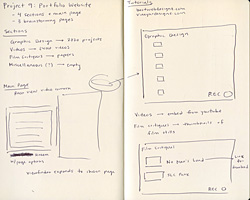 Project 9: Portfolio Website
- 4 sections + main page
- 3 brainstorming pages
Sections
Graphic Design → 2220 projects
Videos →
Film Critiques → papers
Miscellaneous (?) → empty
Main Page
video camera
screen
page options
viewfinder expands to show page
Tutorials
Graphic Design
REC
Videos → embed from youtube
Film Critiques → thumbnails of
film stills
Film Critiques
No Man's Land
link
for
download
REC